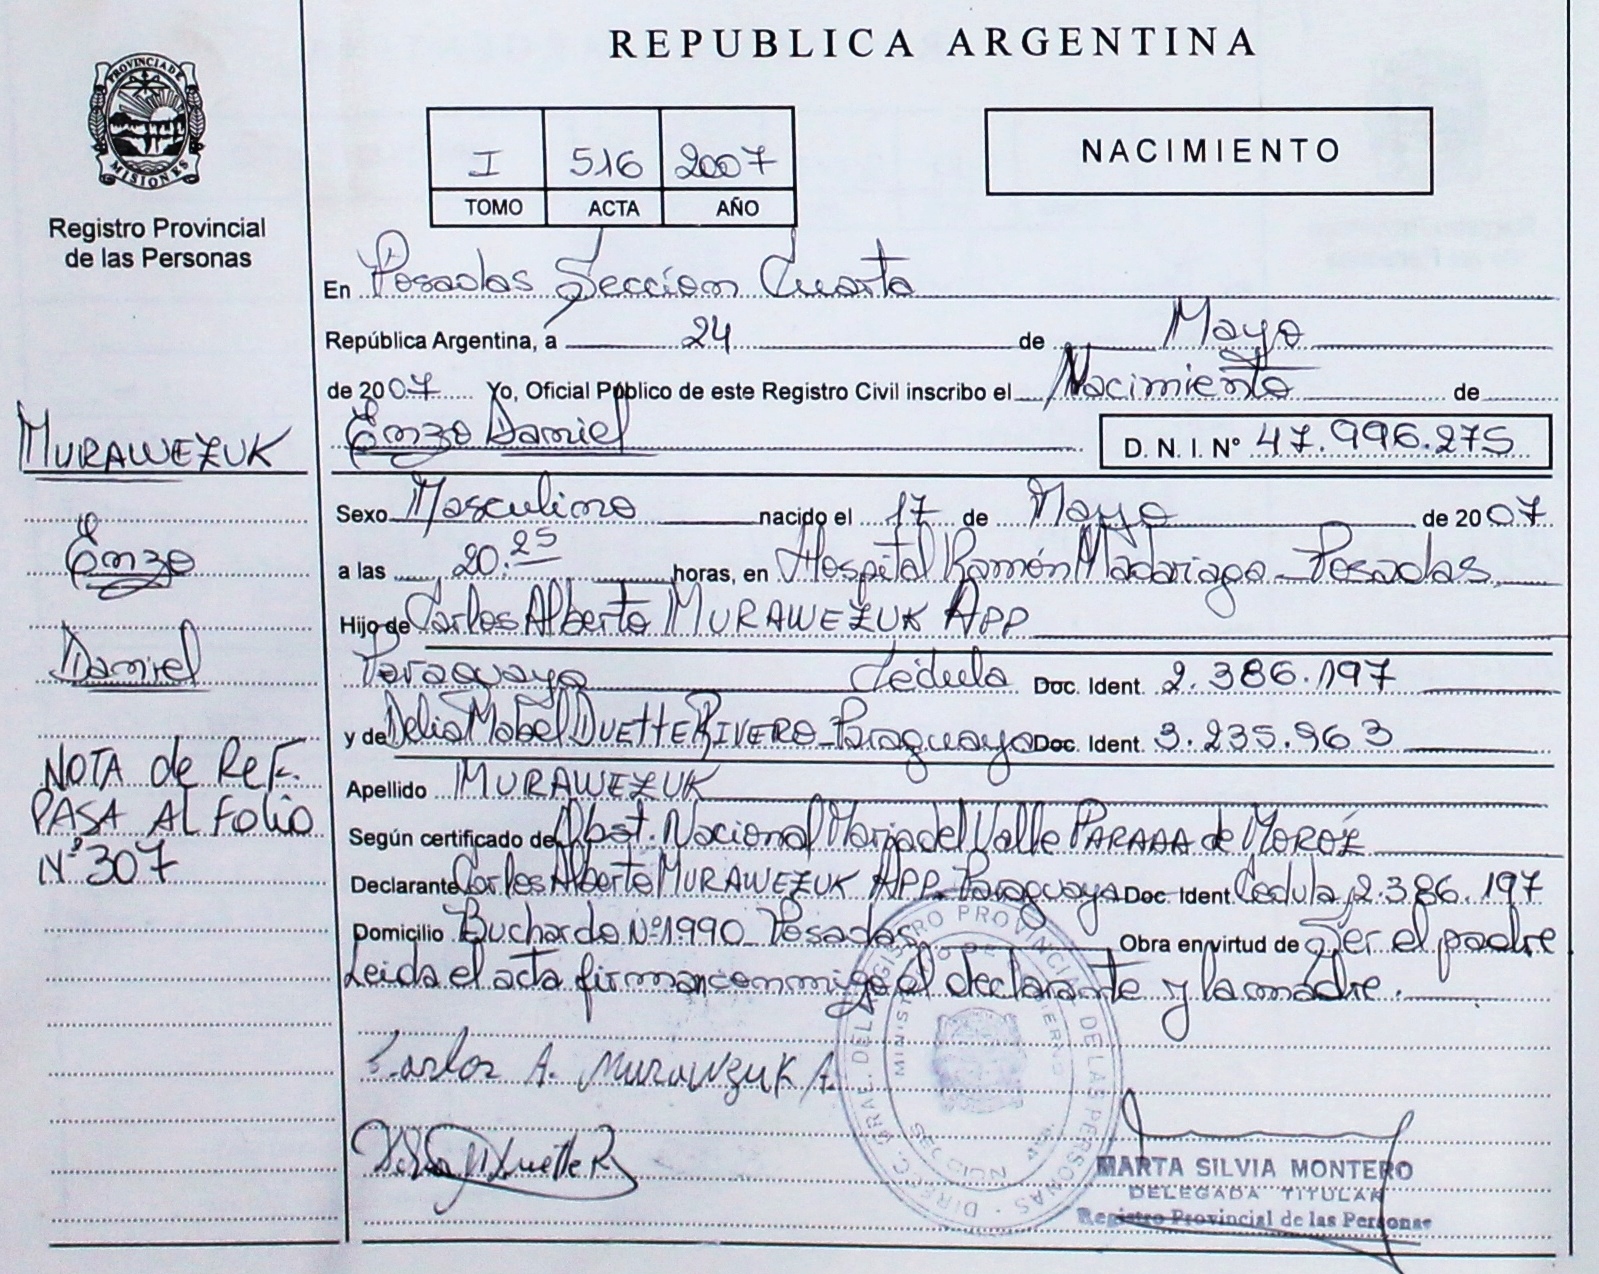 REPUBLICA ARGENTINA
PROVINCIA DE MISIONES
Registro Provincial
de las Personas
I 516 2007
TOMO ACTA AÑO
NACIMIENTO
En Posadas Seccion Cuarta
República Argentina, a 24 de Mayo
de 2007 Yo, Oficial Público de este Registro Civil inscribo el Nacimiento de
Enzo Daniel D. N. I. N° 47.996.275
Sexo Masculino nacido el 17 de Mayo de 2007
a las 20.25 horas, en Hospital Ramón Madariaga - Posadas
Hijo de Carlos Alberto MURAWEZUK APP
Paraguaya Cédula Doc. Ident. 2.386.197
y de Delia Mabel DUETTE RIVERO - Paraguaya Doc. Ident. 3.235.963
Apellido MURAWEZUK
Según certificado de Obst. Nacional Maria del Valle PARADA de MOROZ
Declarante Carlos Alberto MURAWEZUK APP. Paraguaya Doc. Ident. Cédula 2.386.197
Domicilio Buchardo Nº 1990 Posadas Obra en virtud de Ser el padre
Leida el acta firman conmigo el declarante y la madre.
MURAWEZUK
Enzo
Daniel
NOTA de ReF.
PASA AL FOLIO
Nº 307
Carlos A. Murawzuk A.
Duette R
DIREC. GRAL. DEL REGISTRO PROVINCIAL DE LAS PERSONAS
SECCION 4ta
MARTA SILVIA MONTERO
DELEGADA TITULAR
Registro Provincial de las Personas